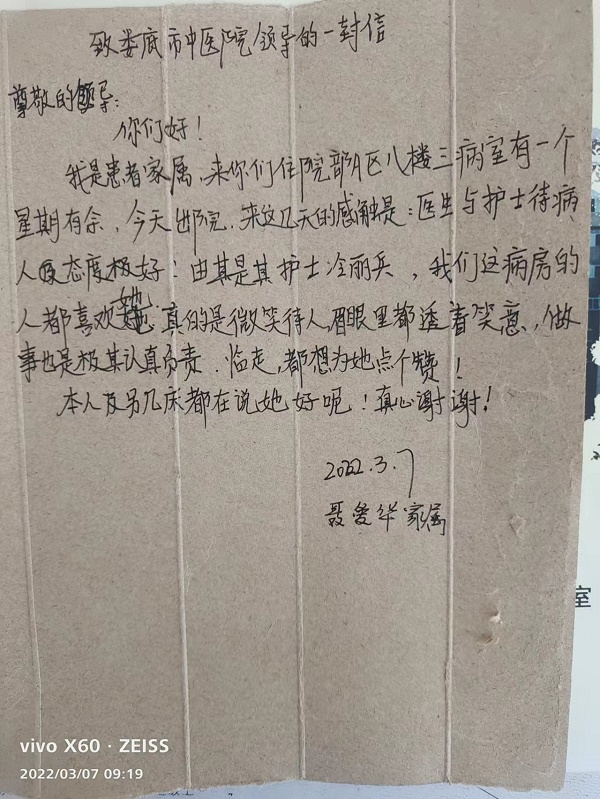 致娄底市中医院领导的一封信
尊敬的领导:
你们好!
我是患者家属,来你们住院部A区八楼三病室有一个
星期有余,今天出院,来这几天的感触是:医生与护士待病
人态度极好!由其是其护士冷丽兵,我们这病房的
人都喜欢她 真的是微笑待人,眉眼里都透着笑意,做
事也是极其认真负责.临走,都想为她点个赞!
本人及另几床都在说她好呢!真心谢谢!
2022.3.7
聂爱华家属
室
vivo X60 · ZEISS
2022/03/07 09:19